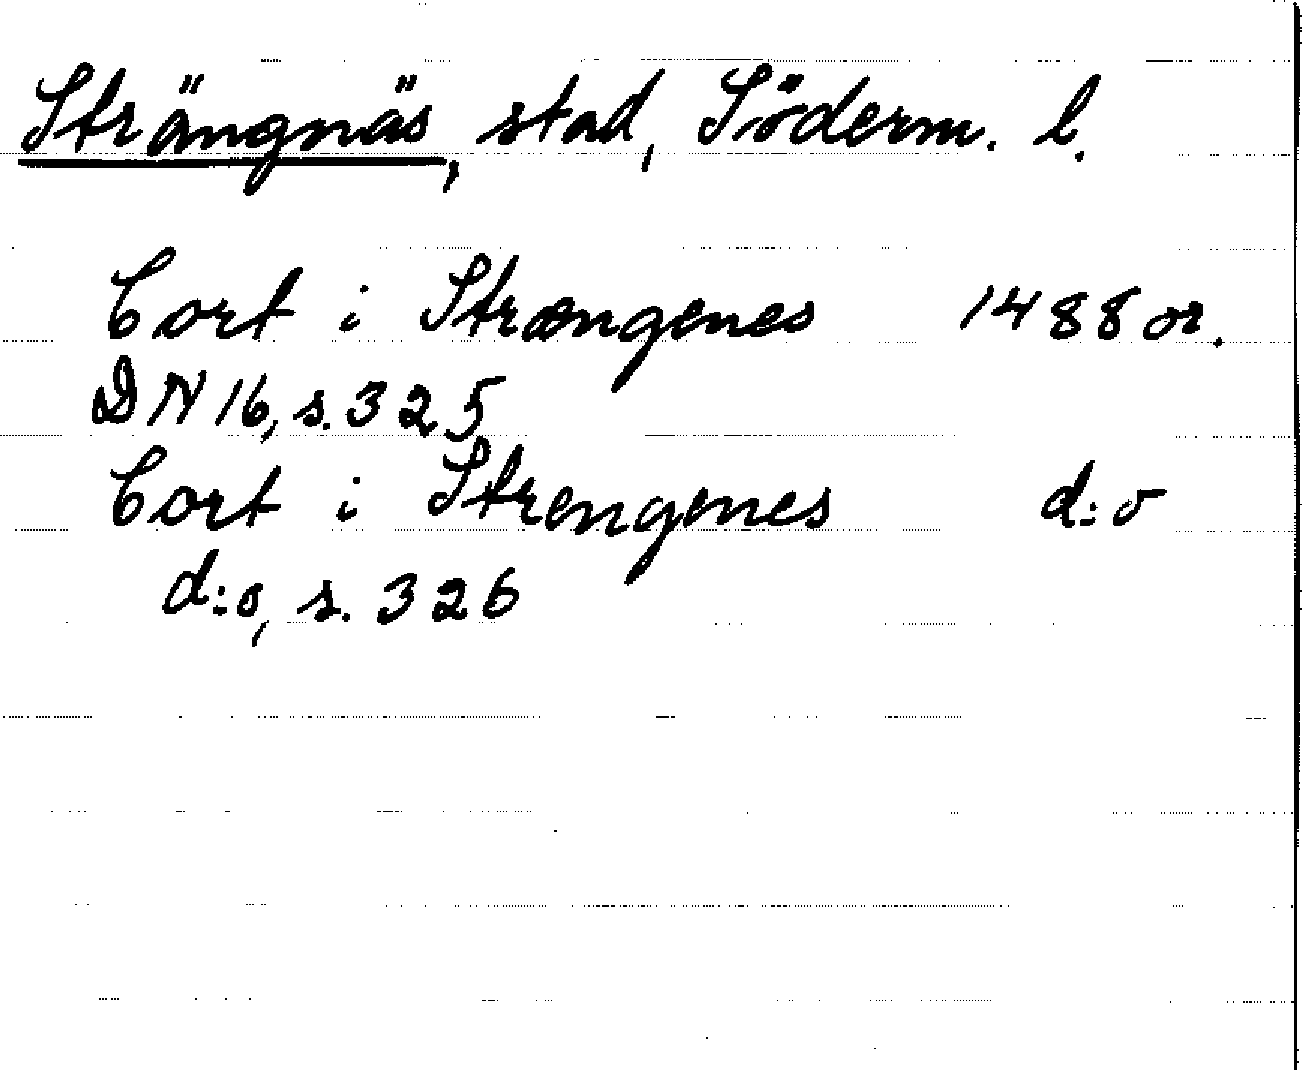 Strängnäs, stad, Söderm. l.
Cort i Strængenes 1488 or.
DN 16, s. 325
Cort i Strengenes d:o
d:o, s. 326